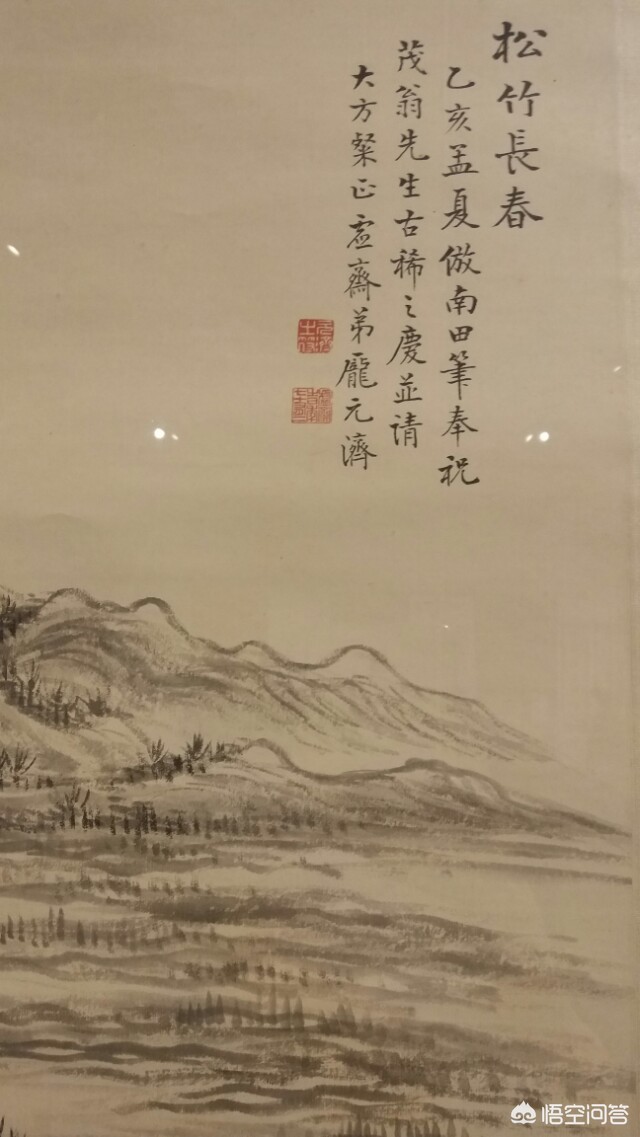 松竹長春
乙亥孟夏倣南田筆奉祝
茂翁先生古稀之慶並请
大方粲正虛齋弟龐元濟
悟空问答